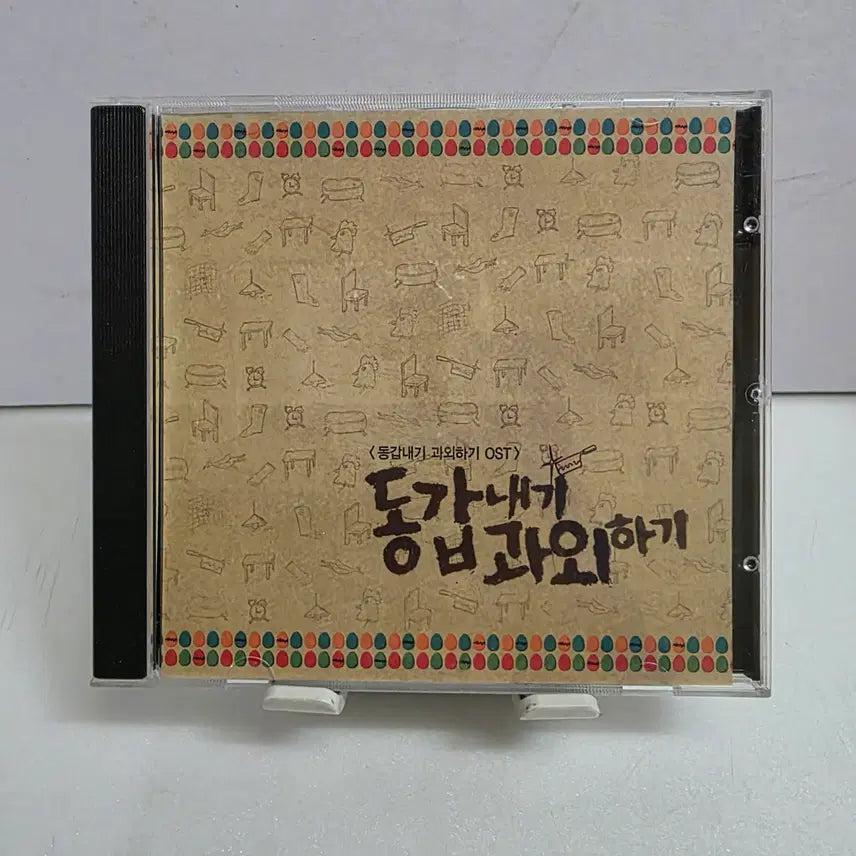 〈동갑내기 과외하기 OST〉
동갑내기
과외하기